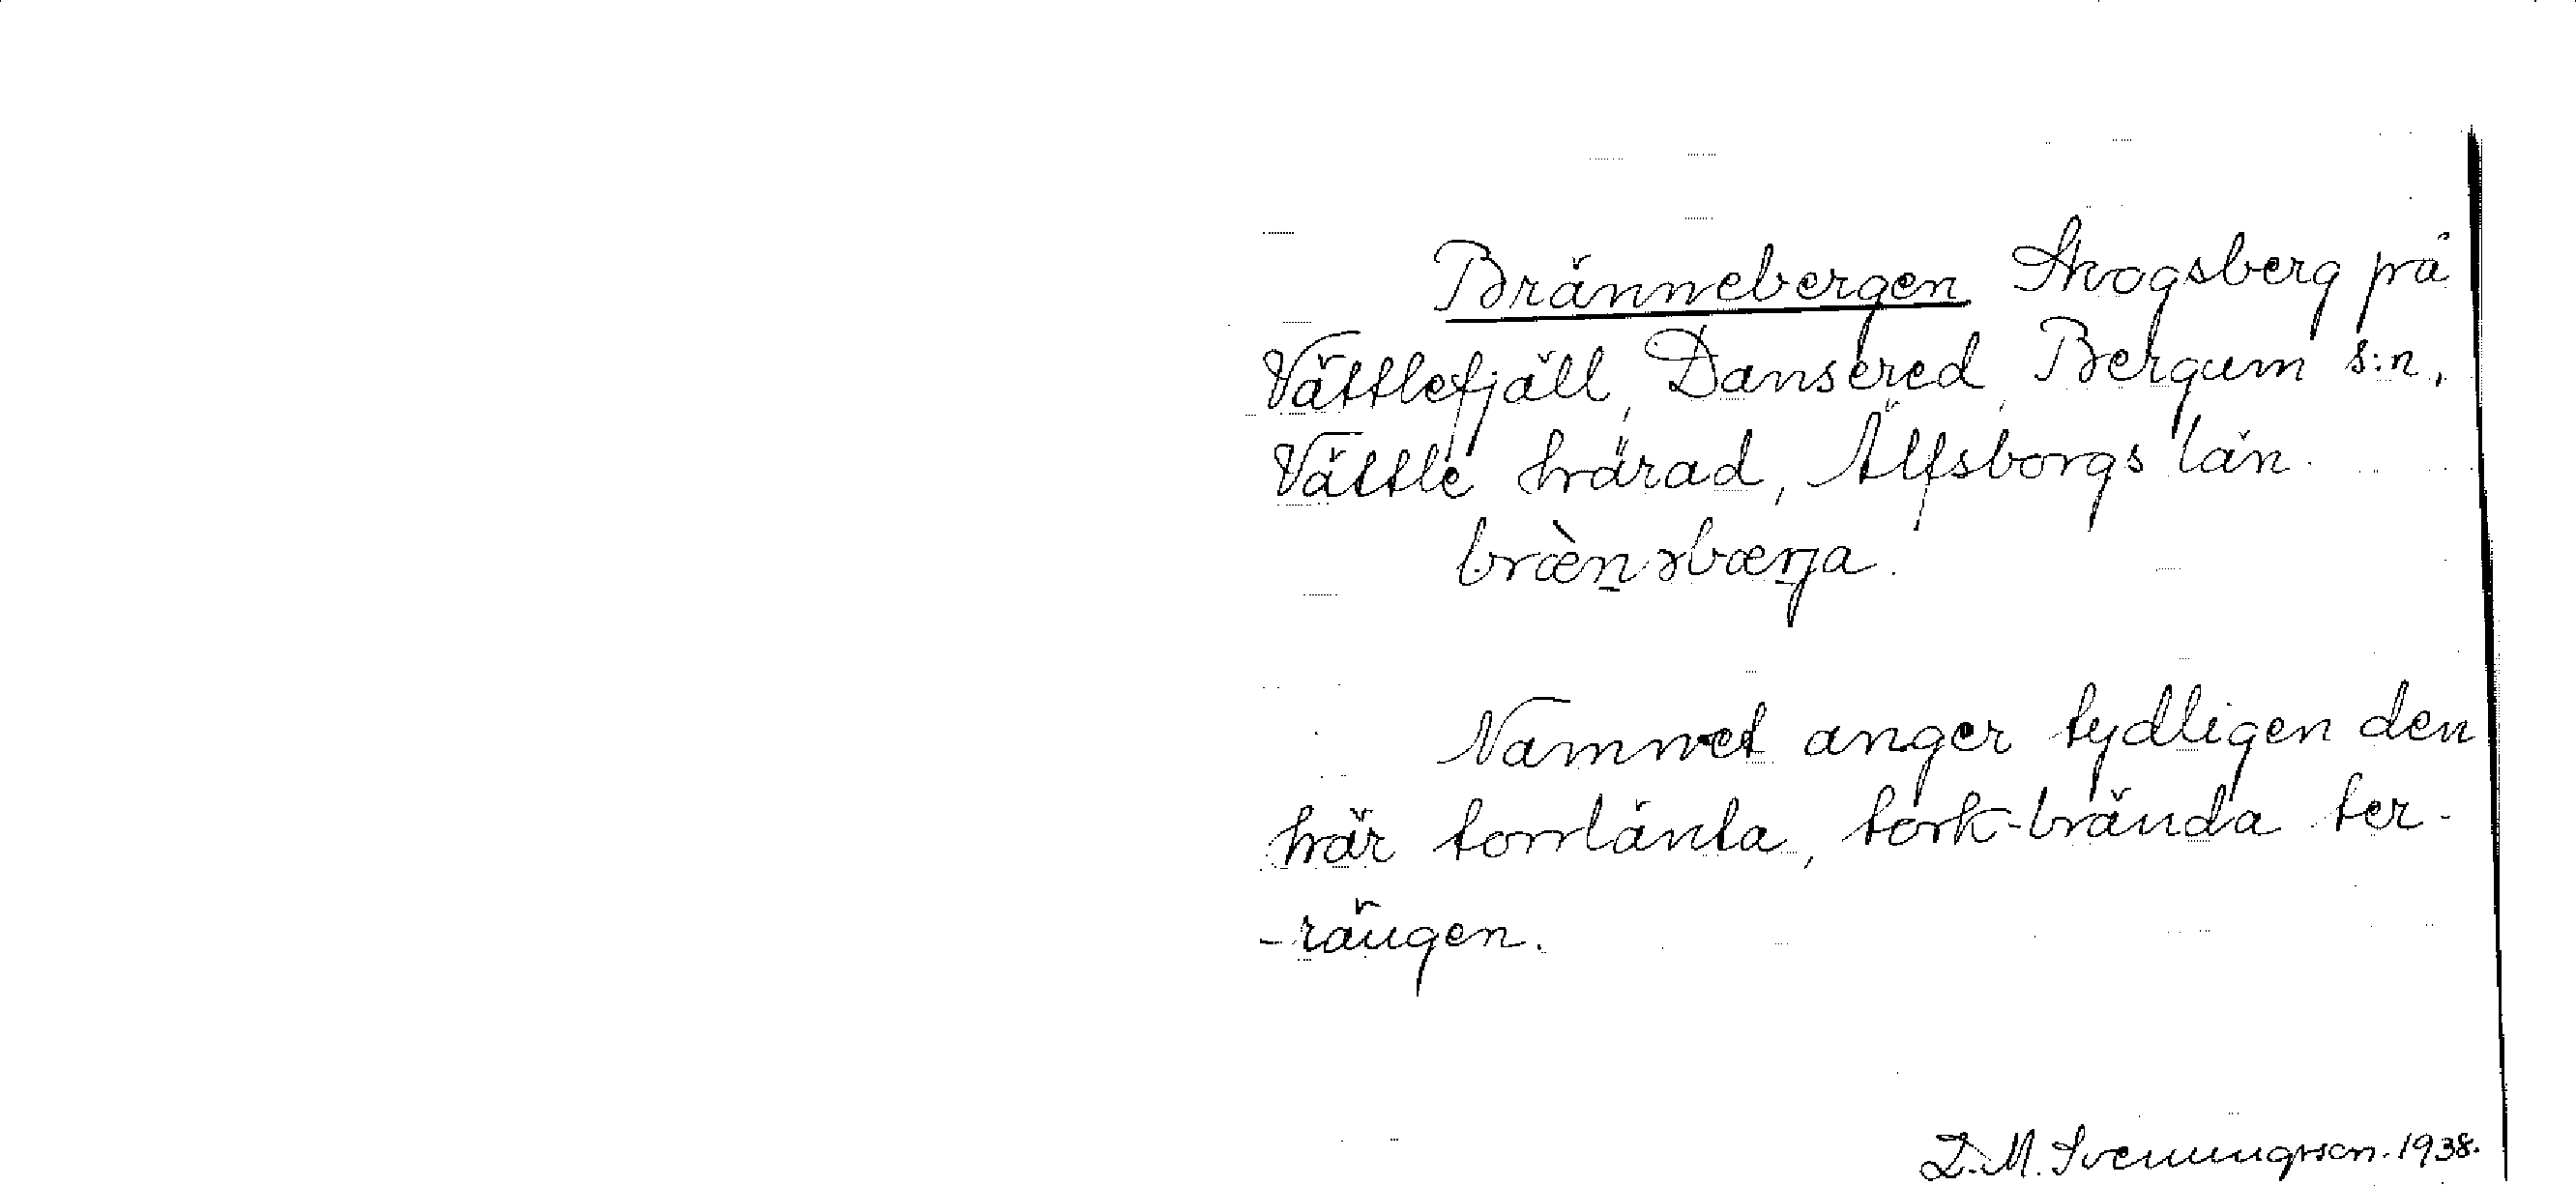 Brännebergen Skogsberg på
Vättlefjäll, Dansered, Bergum s:n,
Vättle härad, Älfsborgs län.
bræ̀nəbærja.
Namnet anger tydligen den
här torrlänta, tork-brända ter-
-rängen.
L. M. Svenungsson. 1938.